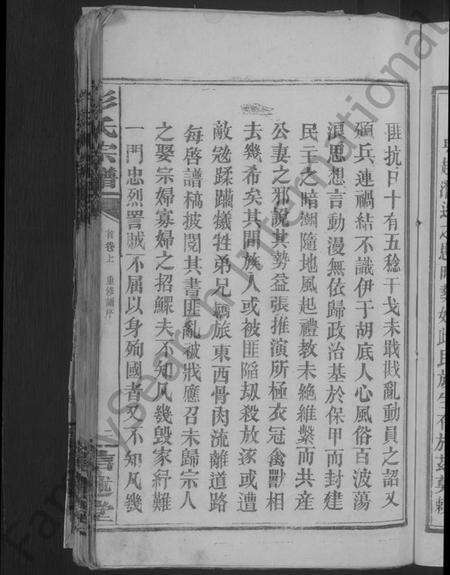 匪抗日十有五稔干戈未戢戡亂動員之詔又
頒兵連禍結不識伊于胡底人心風俗百波蕩
浪思想言動漫無依歸政治基於保甲而封建
民主之暗潮隨地風起禮教未絶維繫而共産
公妻之邪說其勢益張推演所極衣冠禽獸相
去幾希矣其間族人或被匪隘刧殺放逐或遭
敵冦蹂躪犠牲弟兄羈旅東西骨肉流離道路
每啓譜稿披閱其書匪亂被戕應召未歸宗人
之娶宗婦寡婦之招鰥夫不知凡幾毁家紓難
一門忠烈詈賊不屈以身殉國者又不知凡幾
彭氏宗譜
首卷上
重修譜序
堂
FamilySearch International